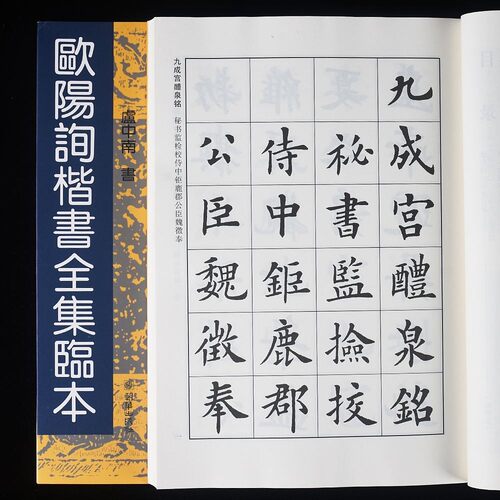 歐陽詢楷書全集臨本
盧中南 書
朝華出版社
九成宫醴泉铭
秘书监检校侍中钜鹿郡公臣魏徵奉
九成宮醴泉銘
祕書監撿挍
侍中鉅鹿郡
公臣魏徵奉
目